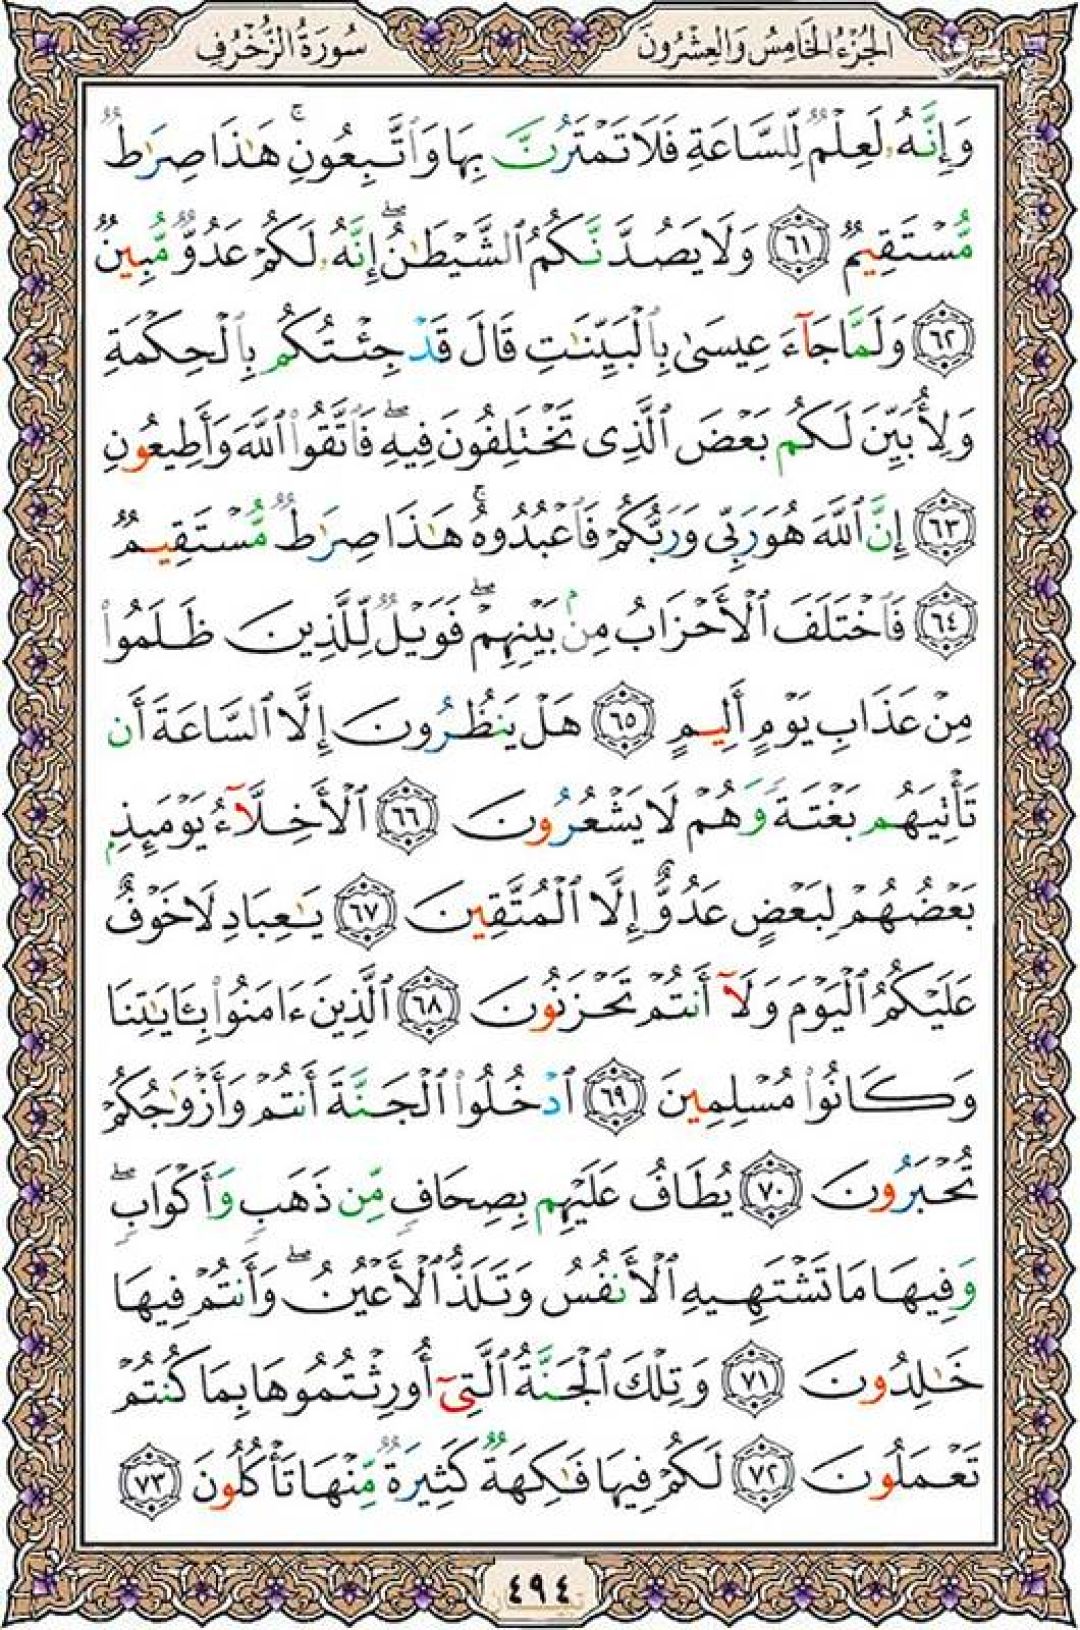 الجُزءُ الخَامِسُ وَالعِشْرُونَ
سُورَةُ الزُّخْرُفِ
وَإِنَّهُۥ لَعِلْمٌ لِّلسَّاعَةِ فَلَا تَمْتَرُنَّ بِهَا وَٱتَّبِعُونِ ۚ هَـٰذَا صِرَٰطٌ
مُّسْتَقِيمٌ ٦١ وَلَا يَصُدَّنَّكُمُ ٱلشَّيْطَـٰنُ ۖ إِنَّهُۥ لَكُمْ عَدُوٌّ مُّبِينٌ
٦٢ وَلَمَّا جَآءَ عِيسَىٰ بِٱلْبَيِّنَـٰتِ قَالَ قَدْ جِئْتُكُم بِٱلْحِكْمَةِ
وَلِأُبَيِّنَ لَكُم بَعْضَ ٱلَّذِى تَخْتَلِفُونَ فِيهِ ۖ فَٱتَّقُوا۟ ٱللَّهَ وَأَطِيعُونِ
٦٣ إِنَّ ٱللَّهَ هُوَ رَبِّى وَرَبُّكُمْ فَٱعْبُدُوهُ ۚ هَـٰذَا صِرَٰطٌ مُّسْتَقِيمٌ
٦٤ فَٱخْتَلَفَ ٱلْأَحْزَابُ مِنۢ بَيْنِهِمْ ۖ فَوَيْلٌ لِّلَّذِينَ ظَلَمُوا۟
مِنْ عَذَابِ يَوْمٍ أَلِيمٍ ٦٥ هَلْ يَنظُرُونَ إِلَّا ٱلسَّاعَةَ أَن
تَأْتِيَهُم بَغْتَةً وَهُمْ لَا يَشْعُرُونَ ٦٦ ٱلْأَخِلَّآءُ يَوْمَئِذٍۭ
بَعْضُهُمْ لِبَعْضٍ عَدُوٌّ إِلَّا ٱلْمُتَّقِينَ ٦٧ يَـٰعِبَادِ لَا خَوْفٌ
عَلَيْكُمُ ٱلْيَوْمَ وَلَآ أَنتُمْ تَحْزَنُونَ ٦٨ ٱلَّذِينَ ءَامَنُوا۟ بِـَٔايَـٰتِنَا
وَكَانُوا۟ مُسْلِمِينَ ٦٩ ٱدْخُلُوا۟ ٱلْجَنَّةَ أَنتُمْ وَأَزْوَٰجُكُمْ
تُحْبَرُونَ ٧٠ يُطَافُ عَلَيْهِم بِصِحَافٍ مِّن ذَهَبٍ وَأَكْوَابٍ ۖ
وَفِيهَا مَا تَشْتَهِيهِ ٱلْأَنفُسُ وَتَلَذُّ ٱلْأَعْيُنُ ۖ وَأَنتُمْ فِيهَا
خَـٰلِدُونَ ٧١ وَتِلْكَ ٱلْجَنَّةُ ٱلَّتِىٓ أُورِثْتُمُوهَا بِمَا كُنتُمْ
تَعْمَلُونَ ٧٢ لَكُمْ فِيهَا فَـٰكِهَةٌ كَثِيرَةٌ مِّنْهَا تَأْكُلُونَ ٧٣
٤٩٤